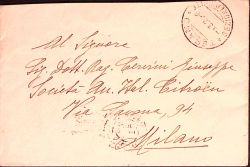 Al Signore
Sig. Dott. Rag. Cervini Giuseppe
Società An. Ital. Citroën
Via Savona, 94
Milano